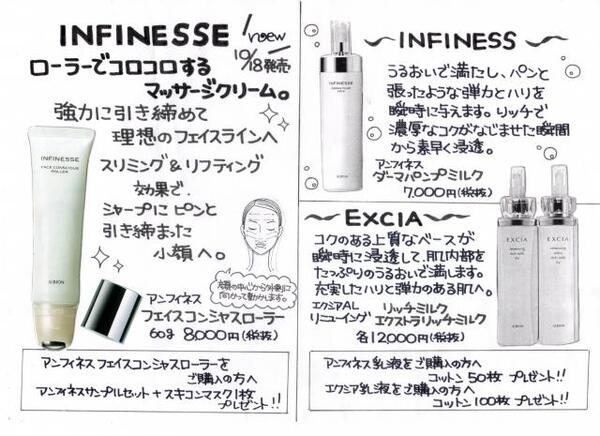 INFINESSE
new
10/18発売
ローラーでコロコロする
マッサージクリーム。
強力に引き締めて
理想のフェイスラインへ
スリミング&リフティング
効果で、
シャープにピンと
引き締まった
小顔へ。
INFINESSE
FACE CONSCIOUS
ROLLER
ALBION
お顔の中心から外側に
向かって動かします。
アンフィネス
フェイスコンシャスローラー
60g 8,000円(税抜)
アンフィネスフェイスコンシャスローラーを
ご購入の方へ
アンフィネスサンプルセット+スキコンマスク1枚
プレゼント!!
INFINESS
INFINESSE
DERMA PUMP
MILK
ALBION
うるおいで満たし、パンと
張ったような弾力とハリを
瞬時に与えます。リッチで
濃厚なコクがなじませた瞬間
から素早く浸透。
アンフィネス
ダーマパンプミルク
7,000円(税抜)
EXCIA
コクのある上質なベースが
瞬時に浸透して、肌内部を
たっぷりのうるおいで満します。
充実したハリと弾力のある肌へ。
エクシアAL
リニューイング
リッチミルク
エクストラリッチミルク
各12,000円(税抜)
EXCIA
ALBION
EXCIA
ALBION
アンフィネス乳液をご購入の方へ
コットン50枚プレゼント!!
エクシア乳液をご購入の方へ
コットン100枚プレゼント!!